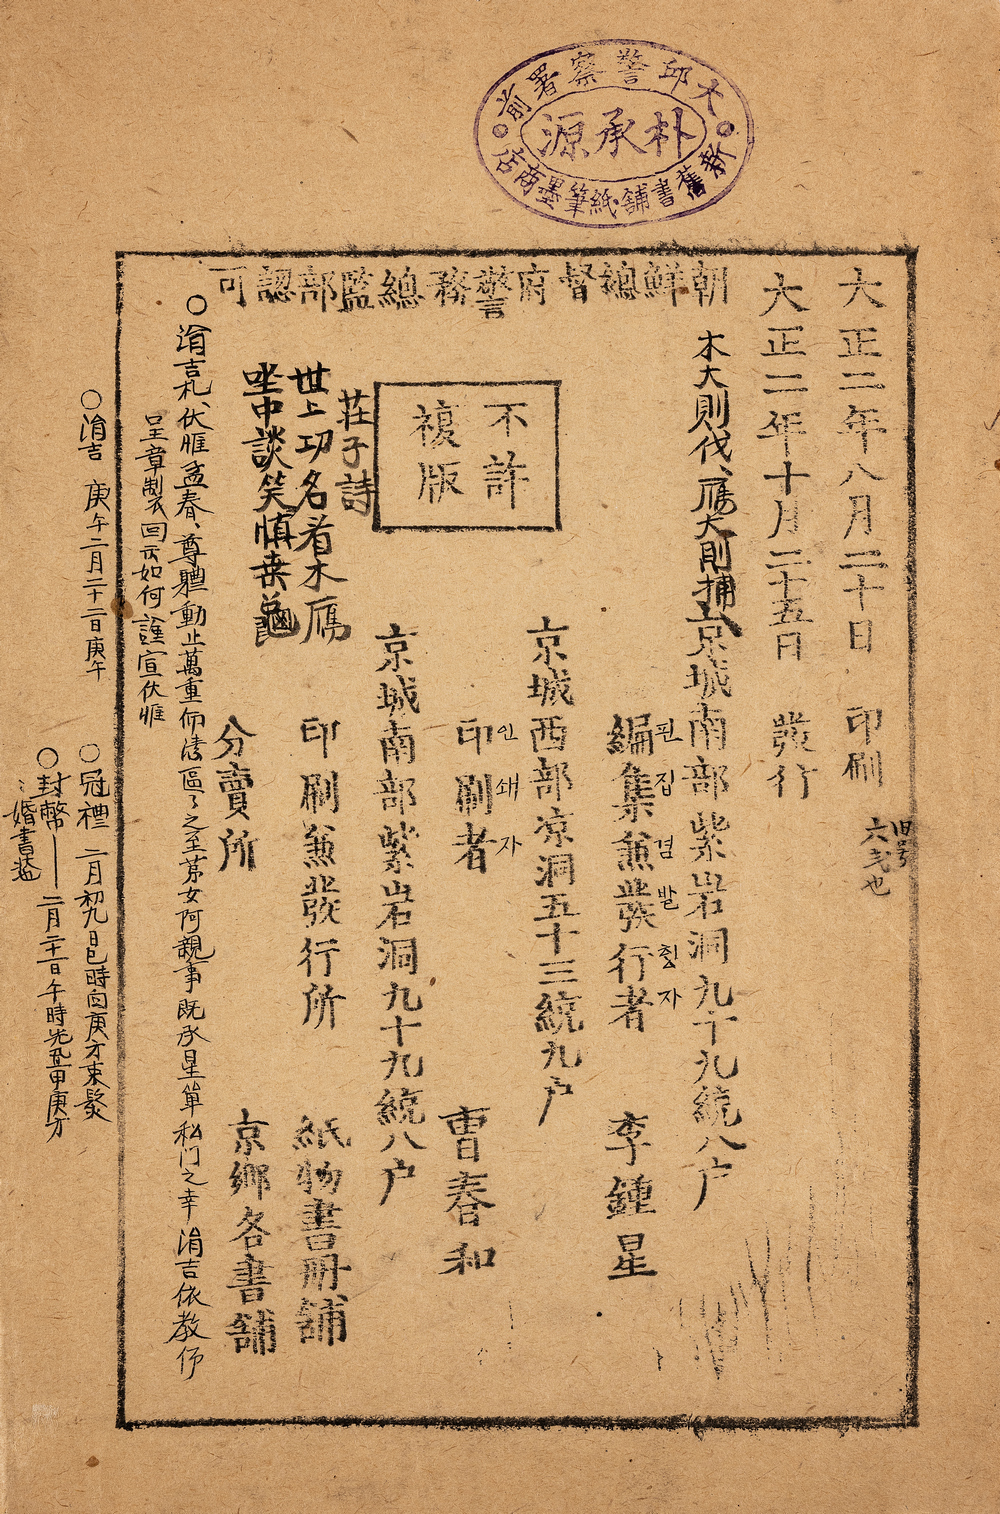 大邱警察署前
朴承源
新舊書舖紙筆墨商店
大正二年八月二十日 印刷
大正二年十月二十五日 發行
朝鮮總督府警務總監部認可
六戔也
木大則伐、鴈大則捕
京城南部紫岩洞九十九統八户
編集兼發行者 李鍾星
편집겸발행자
京城西部凉洞五十三統九户
印刷者 曹春和
인쇄자
不許
複版
京城南部紫岩洞九十九統八户
印刷兼發行所 紙物書冊舖
分賣所 京鄉各書舖
莊子詩
世上功名看木鴈
坐中談笑愼桑龜
○涓吉札、伏惟孟春、尊軆動止萬重仰溸區々之至 女阿親事既承星單私门之幸涓吉依教伻
呈章製 回示如何謹宣伏惟
○涓吉 庚午二月二十二日庚午
○冠禮 二月初九日巳時向庚方束髮
○封幣— 二月二十一日午時先 甲庚方
婚書